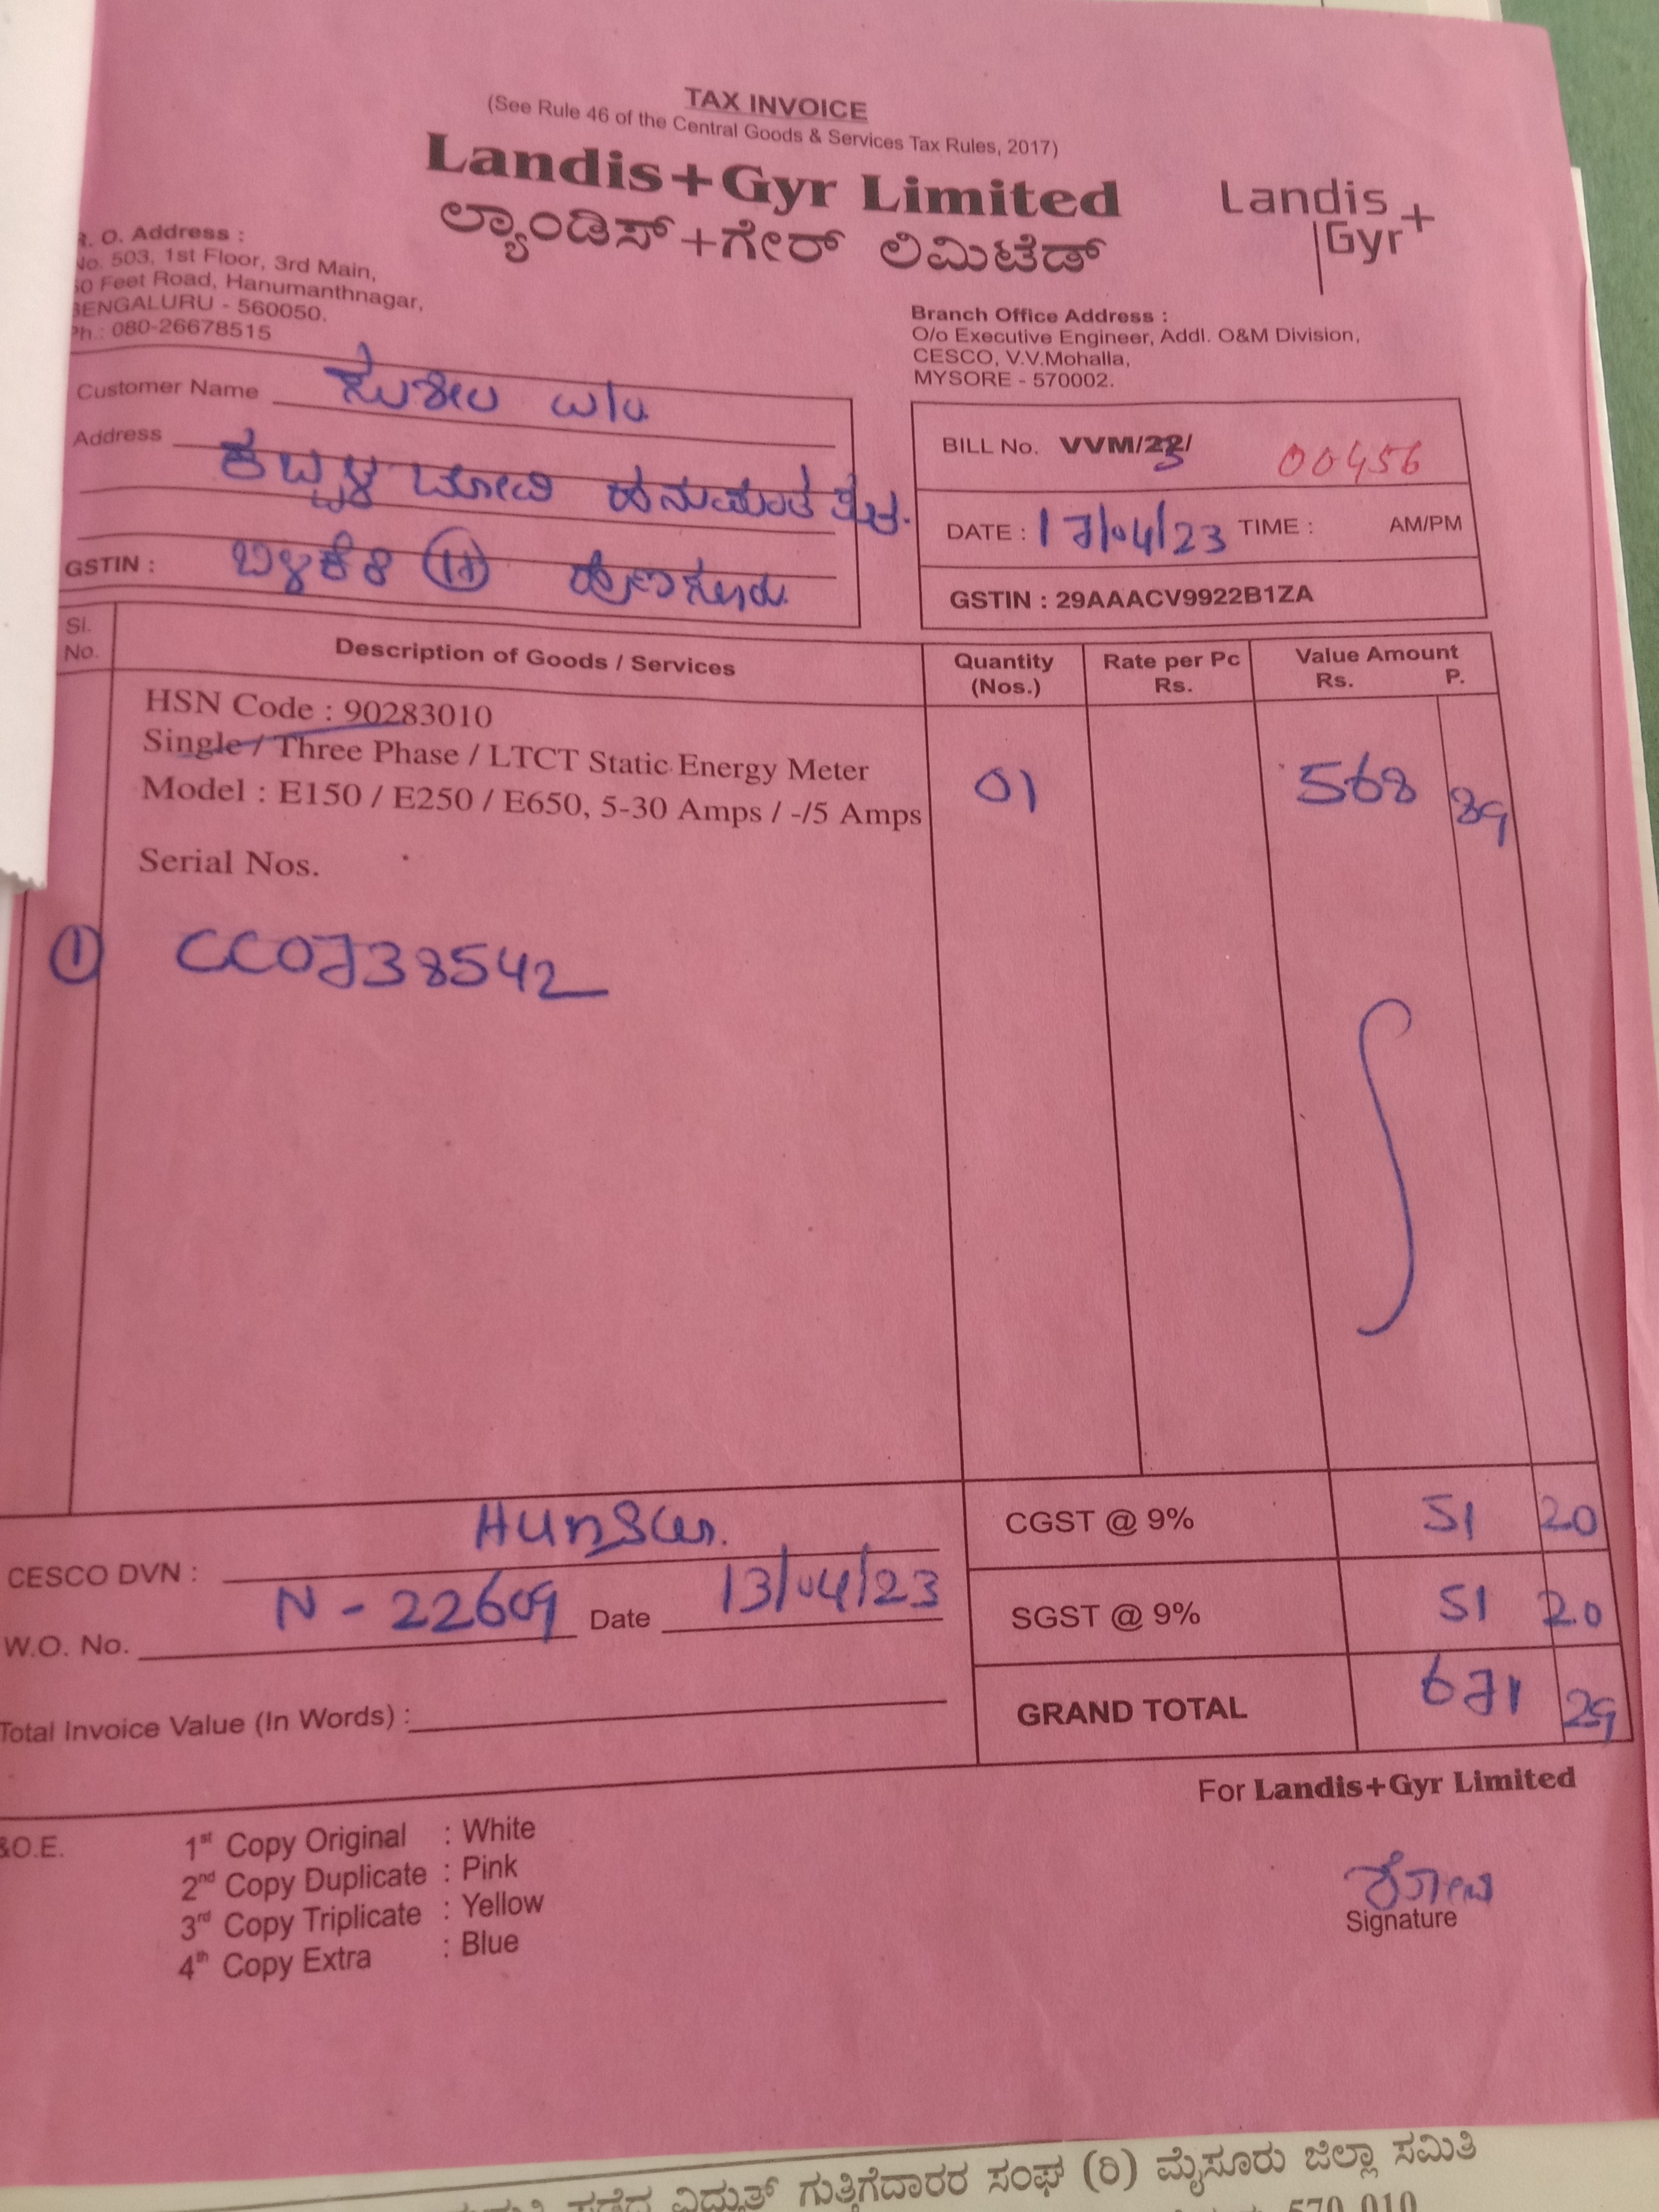 TAX INVOICE
(See Rule 46 of the Central Goods & Services Tax Rules, 2017)
Landis+Gyr Limited
ಲ್ಯಾಂಡಿಸ್+ಗೇರ್ ಲಿಮಿಟೆಡ್
Landis
Gyr+
R. O. Address :
No. 503, 1st Floor, 3rd Main,
60 Feet Road, Hanumanthnagar,
BENGALURU - 560050.
Ph.: 080-26678515
Branch Office Address :
O/o Executive Engineer, Addl. O&M Division,
CESCO, V.V.Mohalla,
MYSORE - 570002.
Customer Name ಸುಶೀಲ
Address
ಹನುಮಂತ
GSTIN : ಬಿಳಿಕೆರೆ (H) ಹುಣಸೂರು
BILL No. VVM/23/ 00456
DATE : 17/04/23 TIME : AM/PM
GSTIN : 29AAACV9922B1ZA
Sl. No. Description of Goods / Services Quantity (Nos.) Rate per Pc Rs. Value Amount Rs. P.
HSN Code : 90283010
Single / Three Phase / LTCT Static Energy Meter
Model : E150 / E250 / E650, 5-30 Amps / -/5 Amps 01 568 89
Serial Nos.
① CC0738542
CESCO DVN : Hunsur. CGST @ 9% 51 20
W.O. No. N - 22609 Date 13/04/23 SGST @ 9% 51 20
Total Invoice Value (In Words) : GRAND TOTAL 671 29
For Landis+Gyr Limited
&O.E.
1st Copy Original : White
2nd Copy Duplicate : Pink
3rd Copy Triplicate : Yellow
4th Copy Extra : Blue
Signature
ವಿದ್ಯುತ್ ಗುತ್ತಿಗೆದಾರರ ಸಂಘ (ರಿ) ಮೈಸೂರು ಜಿಲ್ಲಾ ಸಮಿತಿ
570 010